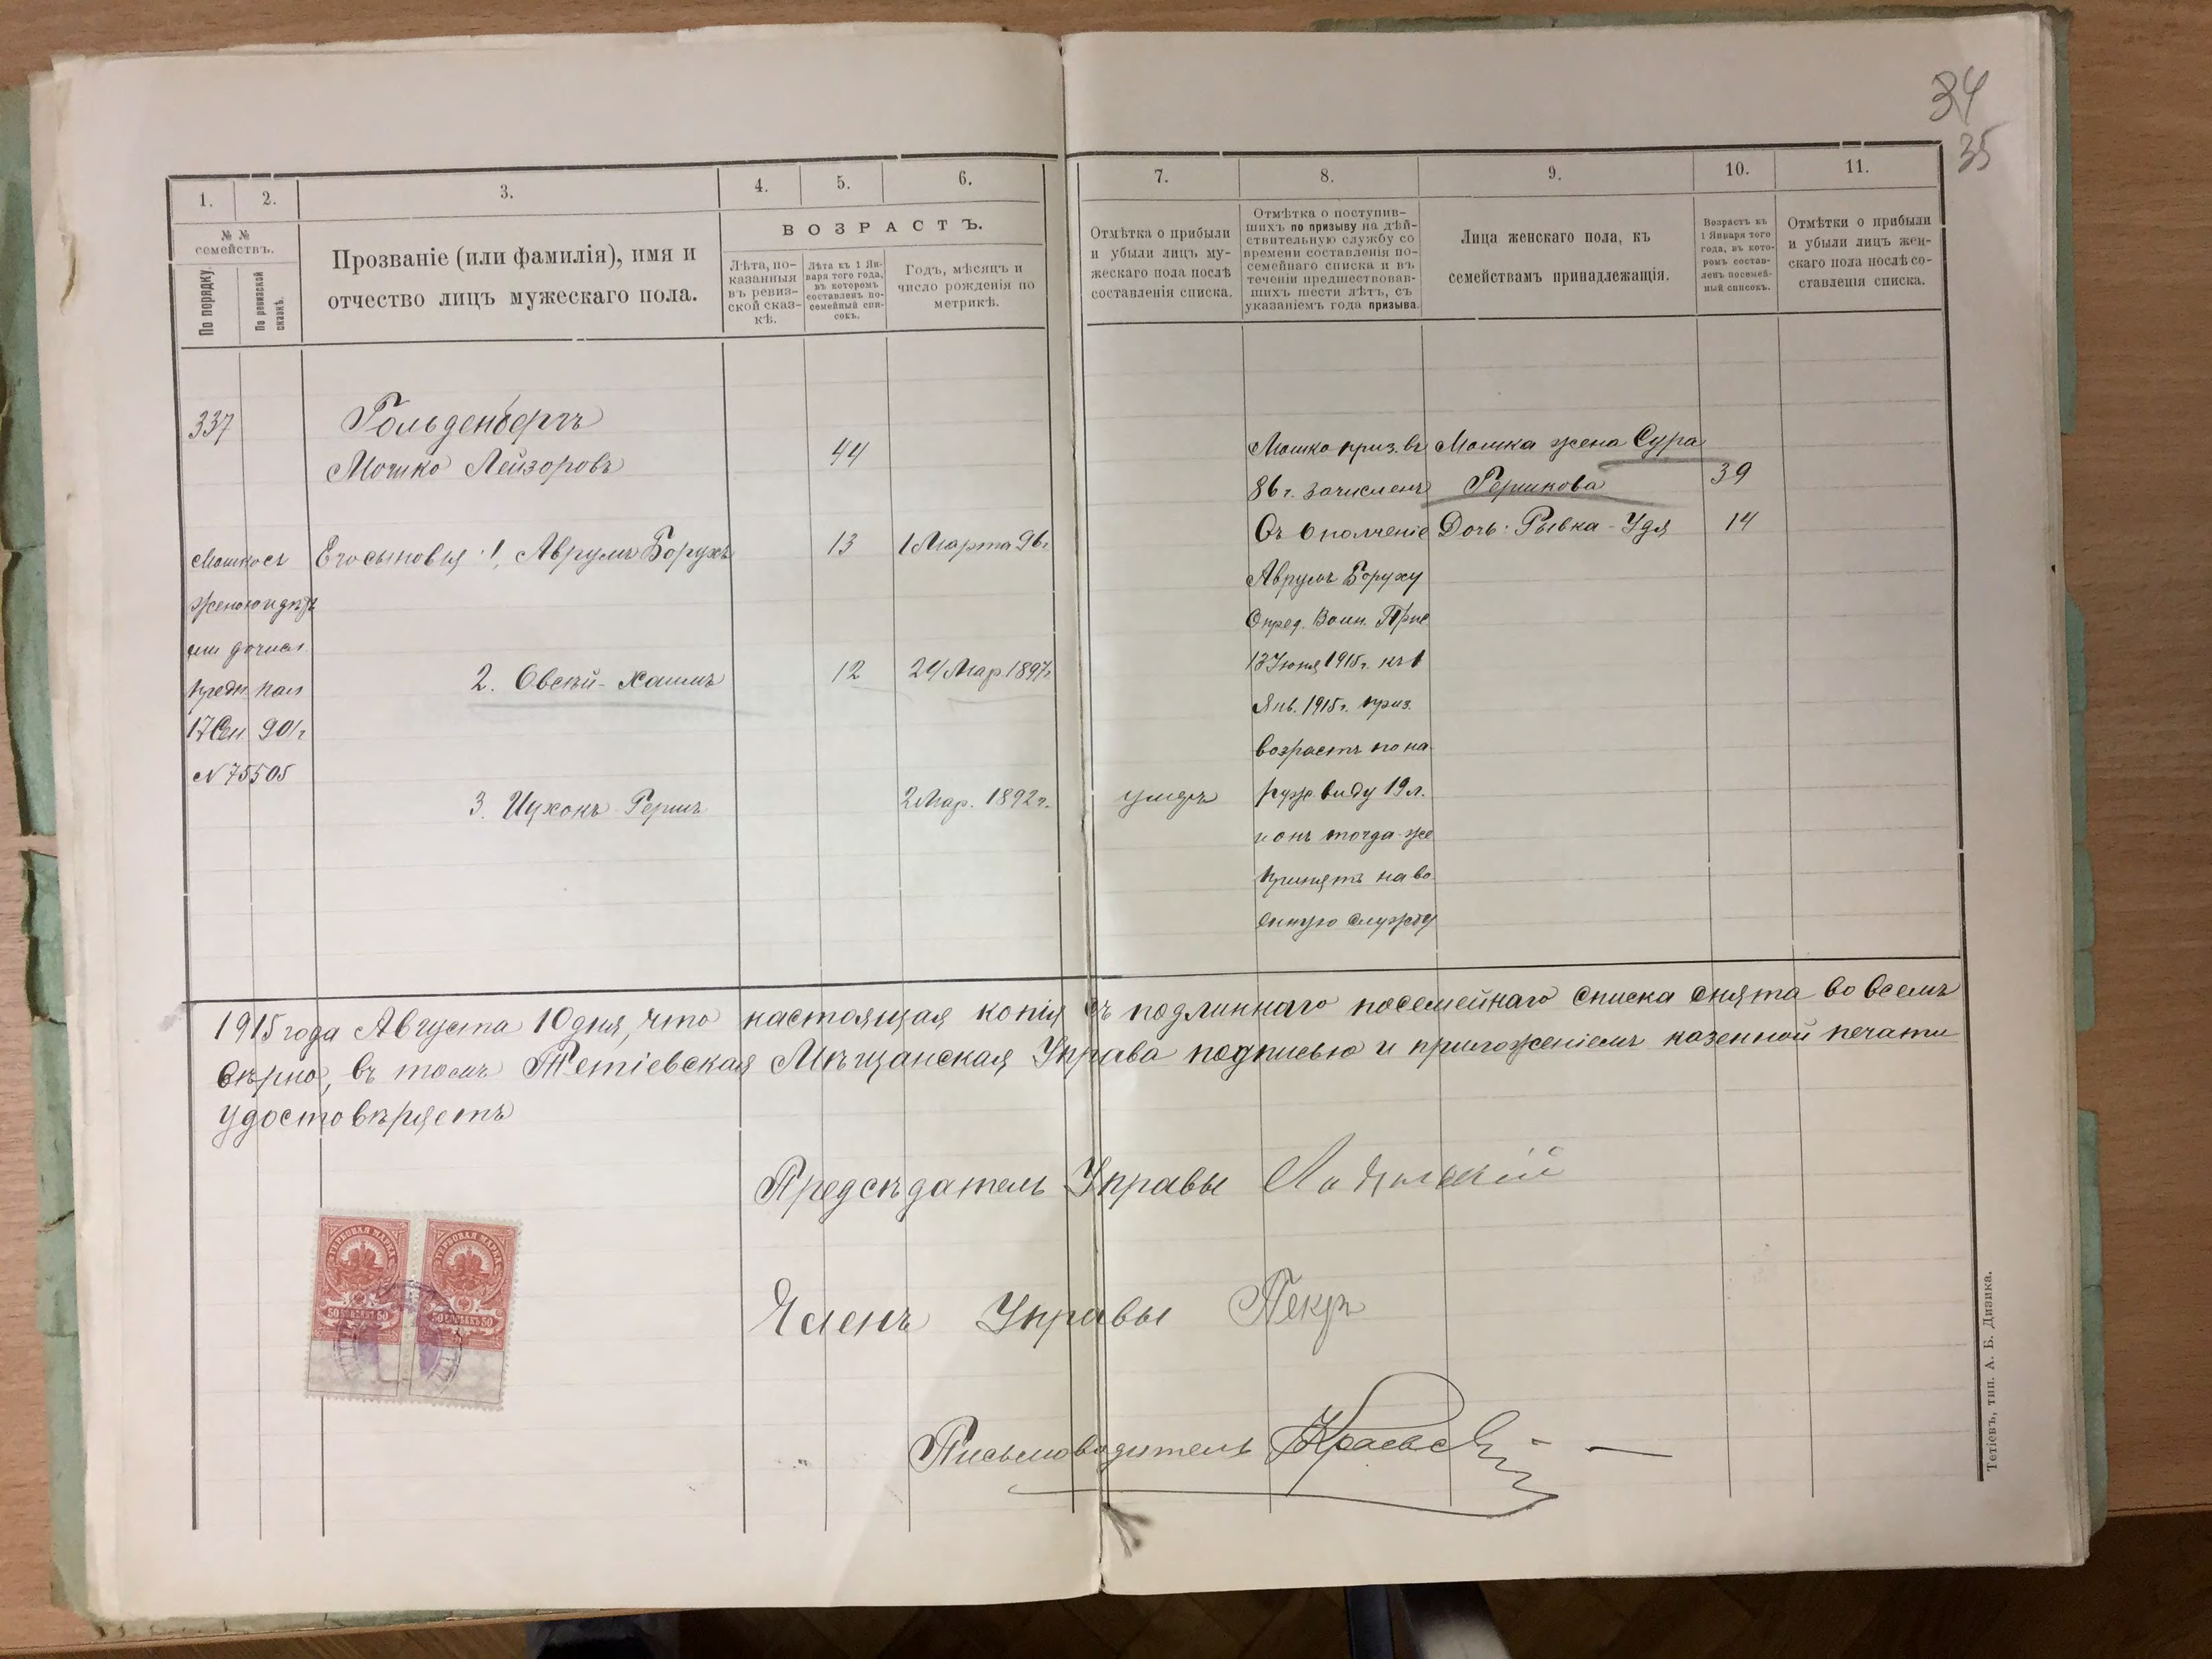 34
35
1.
2.
3.
4.
5.
6.
7.
8.
9.
10.
11.
№ №
семействъ.
По порядку.
По ревизской
сказкѣ.
Прозваніе (или фамилія), имя и
отчество лицъ мужескаго пола.
ВОЗРАСТЪ.
Лѣта, по-
казанныя
въ ревиз-
ской сказ-
кѣ.
Лѣта къ 1 Ян-
варя того года,
въ которомъ
составленъ по-
семейный спи-
сокъ.
Годъ, мѣсяцъ и
число рожденія по
метрикѣ.
Отмѣтка о прибыли
и убыли лицъ му-
жескаго пола послѣ
составленія списка.
Отмѣтка о поступив-
шихъ по призыву на дѣй-
ствительную службу со
времени составленія по-
семейнаго списка и въ
теченіи предшествовав-
шихъ шести лѣтъ, съ
указаніемъ года призыва.
Лица женскаго пола, къ
семействамъ принадлежащія.
Возрастъ къ
1 Января того
года, въ кото-
ромъ состав-
ленъ посемей-
ный списокъ.
Отмѣтки о прибыли
и убыли лицъ жен-
скаго пола послѣ со-
ставленія списка.
337
Гольденбергъ
Мошко Лейзоровъ
44
Мошко съ
женою и дѣть
ми
предп. пал
17 Сен. 901 г
N 75505
Его сыновья: 1, Аврумъ Борухъ
13
1 Марта 96 г
2. Овсѣй-Хаимъ
12
24 Мар. 1897 г
3. Ицхокъ Гершъ
2 Мар. 1892 г.
умеръ
Мошко приз. въ
86 г. зачисленъ
въ ополченіе
Авруму Боруху
Опред. Воин. Прис
13 Іюня 1915 г. къ 1
Янв. 1915 г. приз.
возрастъ по на
руж виду 19 л.
и онъ тогда-же
принятъ на во
енную службу
Мошка жена Сура
Гершкова
39
Дочь: Рывка-Удя
14
1915 года Августа 10 дня, что настоящая копія съ подлиннаго посемейнаго списка снята во всемъ
вѣрно, въ томъ Тетіевская Мѣщанская Управа подписью и приложеніемъ казенной печати
удостовѣряетъ
Предсѣдатель Управы
Членъ Управы
Письмоводитель
ГЕРБОВАЯ МАРКА
50 КОПѢЕКЪ 50
ГЕРБОВАЯ МАРКА
50 КОПѢЕКЪ 50
Тетіевъ, тип. А. Б. Дизика.